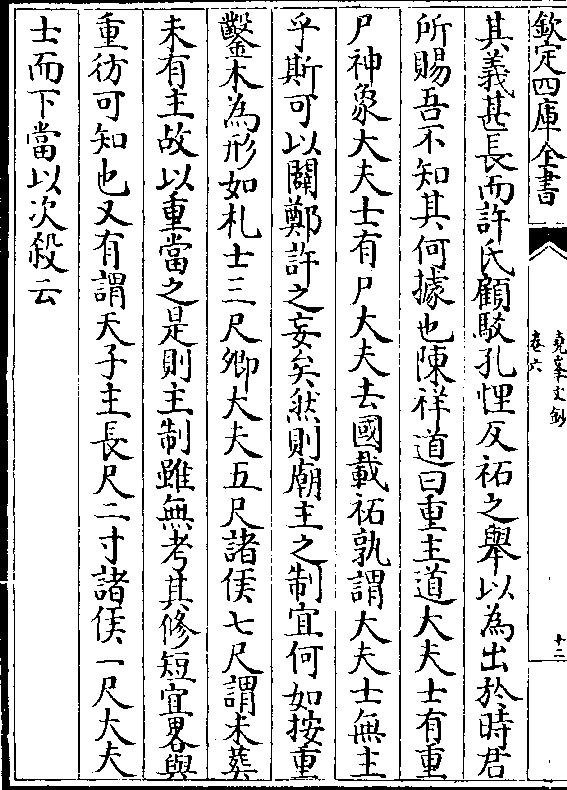 欽定四庫全書
堯峯文鈔
卷六
十三
其義甚長而許氏顧駁孔悝反祏之舉以為出於時君
所賜吾不知其何據也陳祥道曰重主道大夫士有重
尸神象大夫士有尸大夫去國載祏孰謂大夫士無主
乎斯可以闢鄭許之妄矣然則廟主之制宜何如按重
鑿木為形如札士三尺卿大夫五尺諸侯七尺謂未葬
未有主故以重當之是則主制雖無考其修短宜畧與
重彷可知也又有謂天子主長尺二寸諸侯一尺大夫
士而下當以次殺云